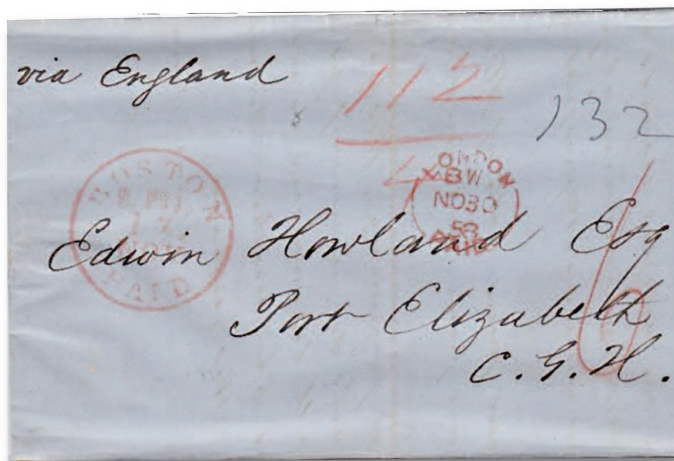 via England
112
132
4
BOSTON
17
NOV
PAID
LONDON
BW
NO30
58
PAID
Edwin Howland Esq
Port Elizabeth
C. G. H.